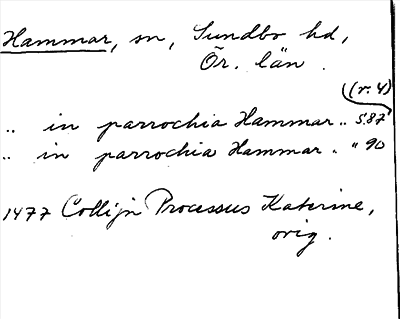 Hammar, sn, Sundbo hd,
Ör. län.
(r. 4)
.. in parrochia Hammar .. s. 87
.. in parrochia Hammar . " 90
1477 Collijn Processus Katerine,
orig.